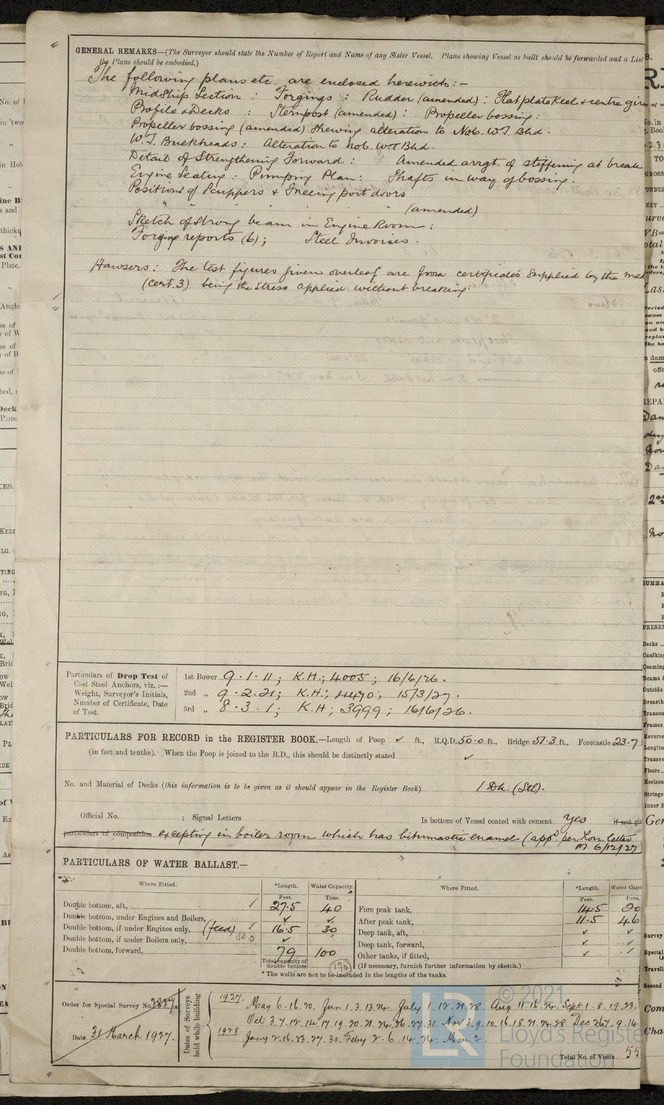 GENERAL REMARKS—(The Surveyor should state the Number of Report and Name of any Sister Vessel. Plans showing Vessel as built should be forwarded and a List
the Plans should be embodied.)
The following plans etc. are enclosed herewith:—
Midship Section : Forgings : Rudder (amended) : Flat plate Keel & centre
Profile & Decks : Sternpost (amended) : Propeller bossing :
Propeller bossing (amended) shewing alteration to No 6. W.T. Bhd.
W.T. Bulkheads : Alteration to No 6. W.T. Bhd.
Detail of Strengthening Forward : Amended arrgt. of stiffening at break
Engine Seating : Pumping Plan : Shafts in way of bossing.
Positions of Scuppers & Freeing port doors
" " " " (amended)
Sketch of Strong beam in Engine Room :
Forging reports (6) ; Steel Invoices.
Hawsers : The test figures given overleaf are from certificates supplied by the
(cert. 3) being the stress applied without breaking.
Particulars of Drop Test of
Cast Steel Anchors, viz. :—
Weight, Surveyor's Initials,
Number of Certificate, Date
of Test.
1st Bower 9 . 1 . 11 ; K.H. ; 4005 ; 16/6/26.
2nd „ 9 . 2 . 21 ; K.H. ; 4490 ; 15/3/27.
3rd „ 8 . 3 . 1 ; K.H ; 3999 ; 16/6/26.
PARTICULARS FOR RECORD in the REGISTER BOOK.—Length of Poop ✓ ft., R.Q.D. 50.0 ft., Bridge 57.3 ft., Forecastle 23.7
(in feet and tenths). When the Poop is joined to the B.D., this should be distinctly stated ✓
No. and Material of Decks (this information is to be given as it should appear in the Register Book) 1 Dk. (Stl).
Official No. ; Signal Letters Is bottom of Vessel coated with cement yes if not
particulars of composition excepting in boiler room which has bitumastic enamel (appd. per Lon. letter
M 6/12/27
PARTICULARS OF WATER BALLAST.—
Where Fitted. *Length. Water Capacity. Where Fitted. *Length.
Feet. Tons. Feet. Tons.
Double bottom, aft, ✓ 27.5 40 Fore peak tank, 14.5 20
Double bottom, under Engines and Boilers, ✓ ✓ After peak tank, 11.5 46
Double bottom, if under Engines only, (feed) ✓ 16.5 30 Deep tank, aft, ✓ ✓
Double bottom, if under Boilers only, ✓ Deep tank, forward, ✓ ✓
Double bottom, forward, 79 100 Other tanks, if fitted, ✓ ✓
Total capacity of double bottom 170 (If necessary, furnish further information by sketch.)
* The wells are not to be included in the lengths of the tanks.
Order for Special Survey No.
Date 31 March 1927.
Dates of Surveys held while building
1927. May 6. 16. 20. Jun 1. 3. 13. 24. July 1. 12. 21. 28 Aug 11. 16. 24. Sept 1. 8. 13. 23.
Oct 3. 7. 12. 14. 17. 19. 20. 21. 24. 26. 27. 31. Nov 3. 9. 10. 16. 18. 21. 24. 28 Dec 2. 6. 7. 9. 14.
1928 Jany 2. 16. 23. 27. 30. Feby 2. 6. 14. 24. Mar 2.
Total No. of Visits 55
© 2021
LR
Lloyd's Register
Foundation